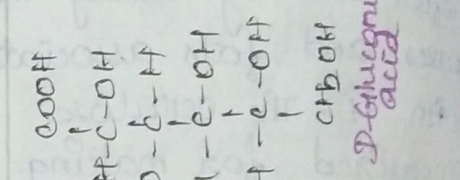 COOH
H-C-OH
-C-H
-C-OH
-C-OH
CH2OH
D-Gluconi
acid